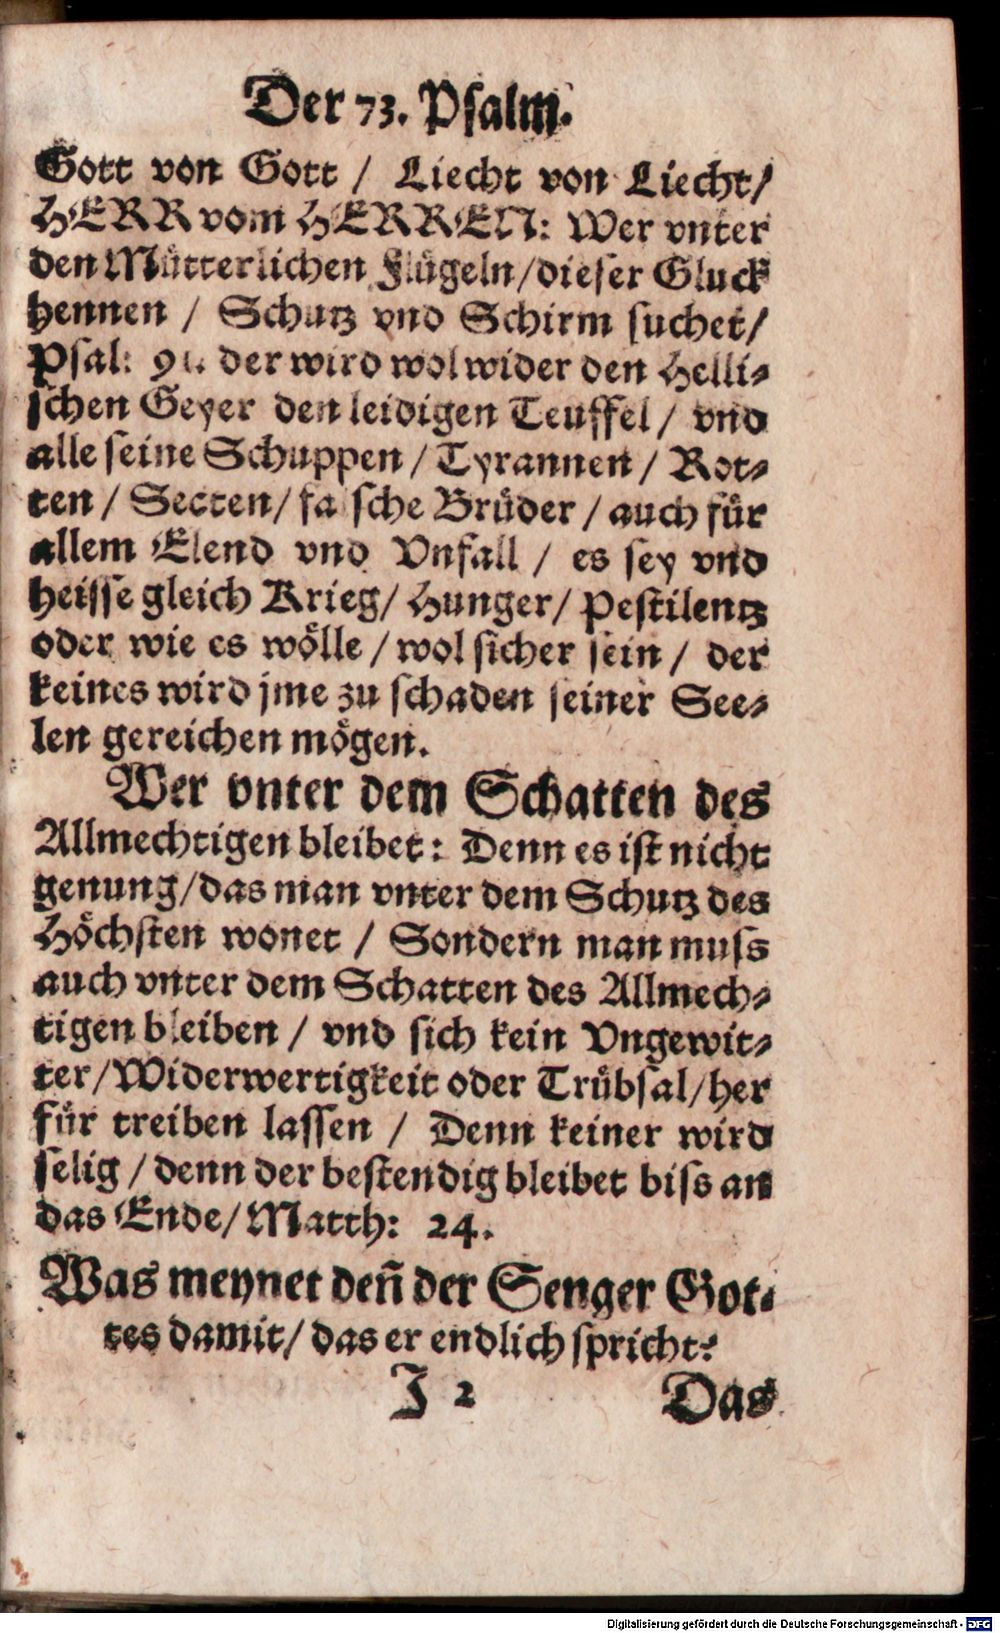 Der 73. Psalm.
Gott von Gott / Liecht von Liecht/
HERR vom HERREN: Wer vnter
den Mütterlichen Flügeln/dieser Gluck
hennen / Schutz vnd Schirm suchet/
Psal: 91. der wird wol wider den Helli⸗
schen Geyer den leidigen Teuffel / vnd
alle seine Schuppen / Tyrannen / Rot⸗
ten / Secten/ falsche Brüder / auch für
allem Elend vnd Vnfall / es sey vnd
heisse gleich Krieg/ Hunger/ Pestilentz
oder wie es wölle / wol sicher sein / der
keines wird jme zu schaden seiner See⸗
len gereichen mögen.
Wer vnter dem Schatten des
Allmechtigen bleibet: Denn es ist nicht
genung/das man vnter dem Schutz des
Höchsten wonet / Sondern man muss
auch vnter dem Schatten des Allmech⸗
tigen bleiben / vnd sich kein Vngewit⸗
ter/Widerwertigkeit oder Trübsal/her
für treiben lassen / Denn keiner wird
selig / denn der bestendig bleibet biss an
das Ende/ Matth: 24.
Was meynet deñ der Senger Got⸗
tes damit/ das er endlich spricht:
J 2 Das
Digitalisierung gefördert durch die Deutsche Forschungsgemeinschaft - DFG